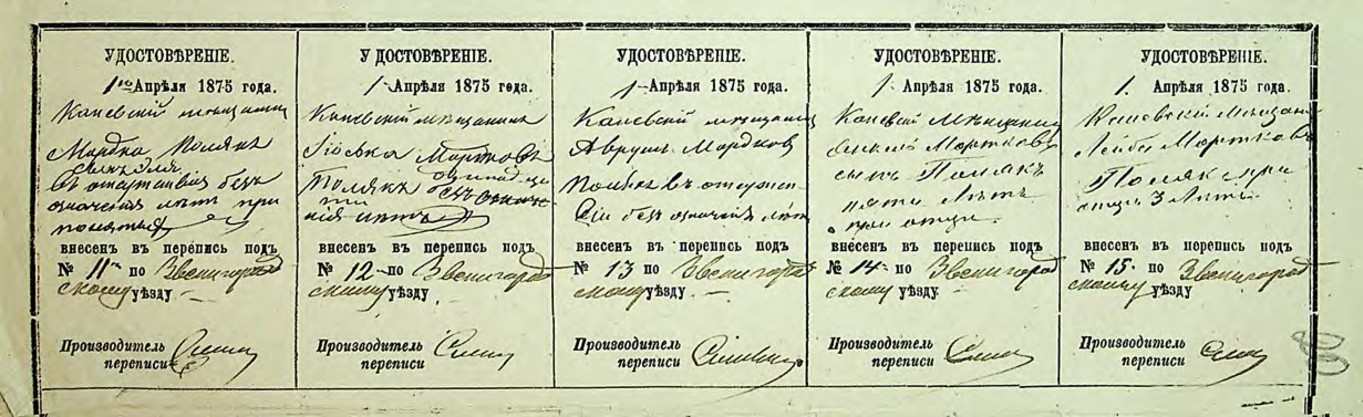 УДОСТОВѢРЕНІЕ.
1го Апрѣля 1875 года.
Каневскій мещанинъ
Мордка Полякъ
въ отсутствіи безъ
означенія лѣтъ при
внесенъ въ перепись подъ
№ 11 по Звенигород
скому уѣзду
Производитель
переписи
УДОСТОВѢРЕНІЕ.
1 Апрѣля 1875 года.
Каневскій мѣщанинъ
Іоська Мортковъ
Полякъ
внесенъ въ перепись подъ
№ 12 по Звенигород
скому уѣзду.
Производитель
переписи
УДОСТОВѢРЕНІЕ.
1 Апрѣля 1875 года.
Каневскій мещанинъ
Аврумъ Мордков
Полякъ въ отсутст-
віи безъ означенія лѣт
внесенъ въ перепись подъ
№ 13 по Звенигород
скому уѣзду.
Производитель
переписи
УДОСТОВѢРЕНІЕ.
1 Апрѣля 1875 года.
Каневскій Мѣщанинъ
Мортковъ
сынъ Полякъ
пяти лѣтъ
при отцѣ.
внесенъ въ перепись подъ
№ 14 по Звенигород
скому уѣзду.
Производитель
переписи
УДОСТОВѢРЕНІЕ.
1. Апрѣля 1875 года.
Каневскій Мѣщан
Лейба Мортковъ
Полякъ при
отцѣ 3 лѣтъ
внесенъ въ перепись подъ
№ 15. по Звенигород
скому уѣзду
Производитель
переписи